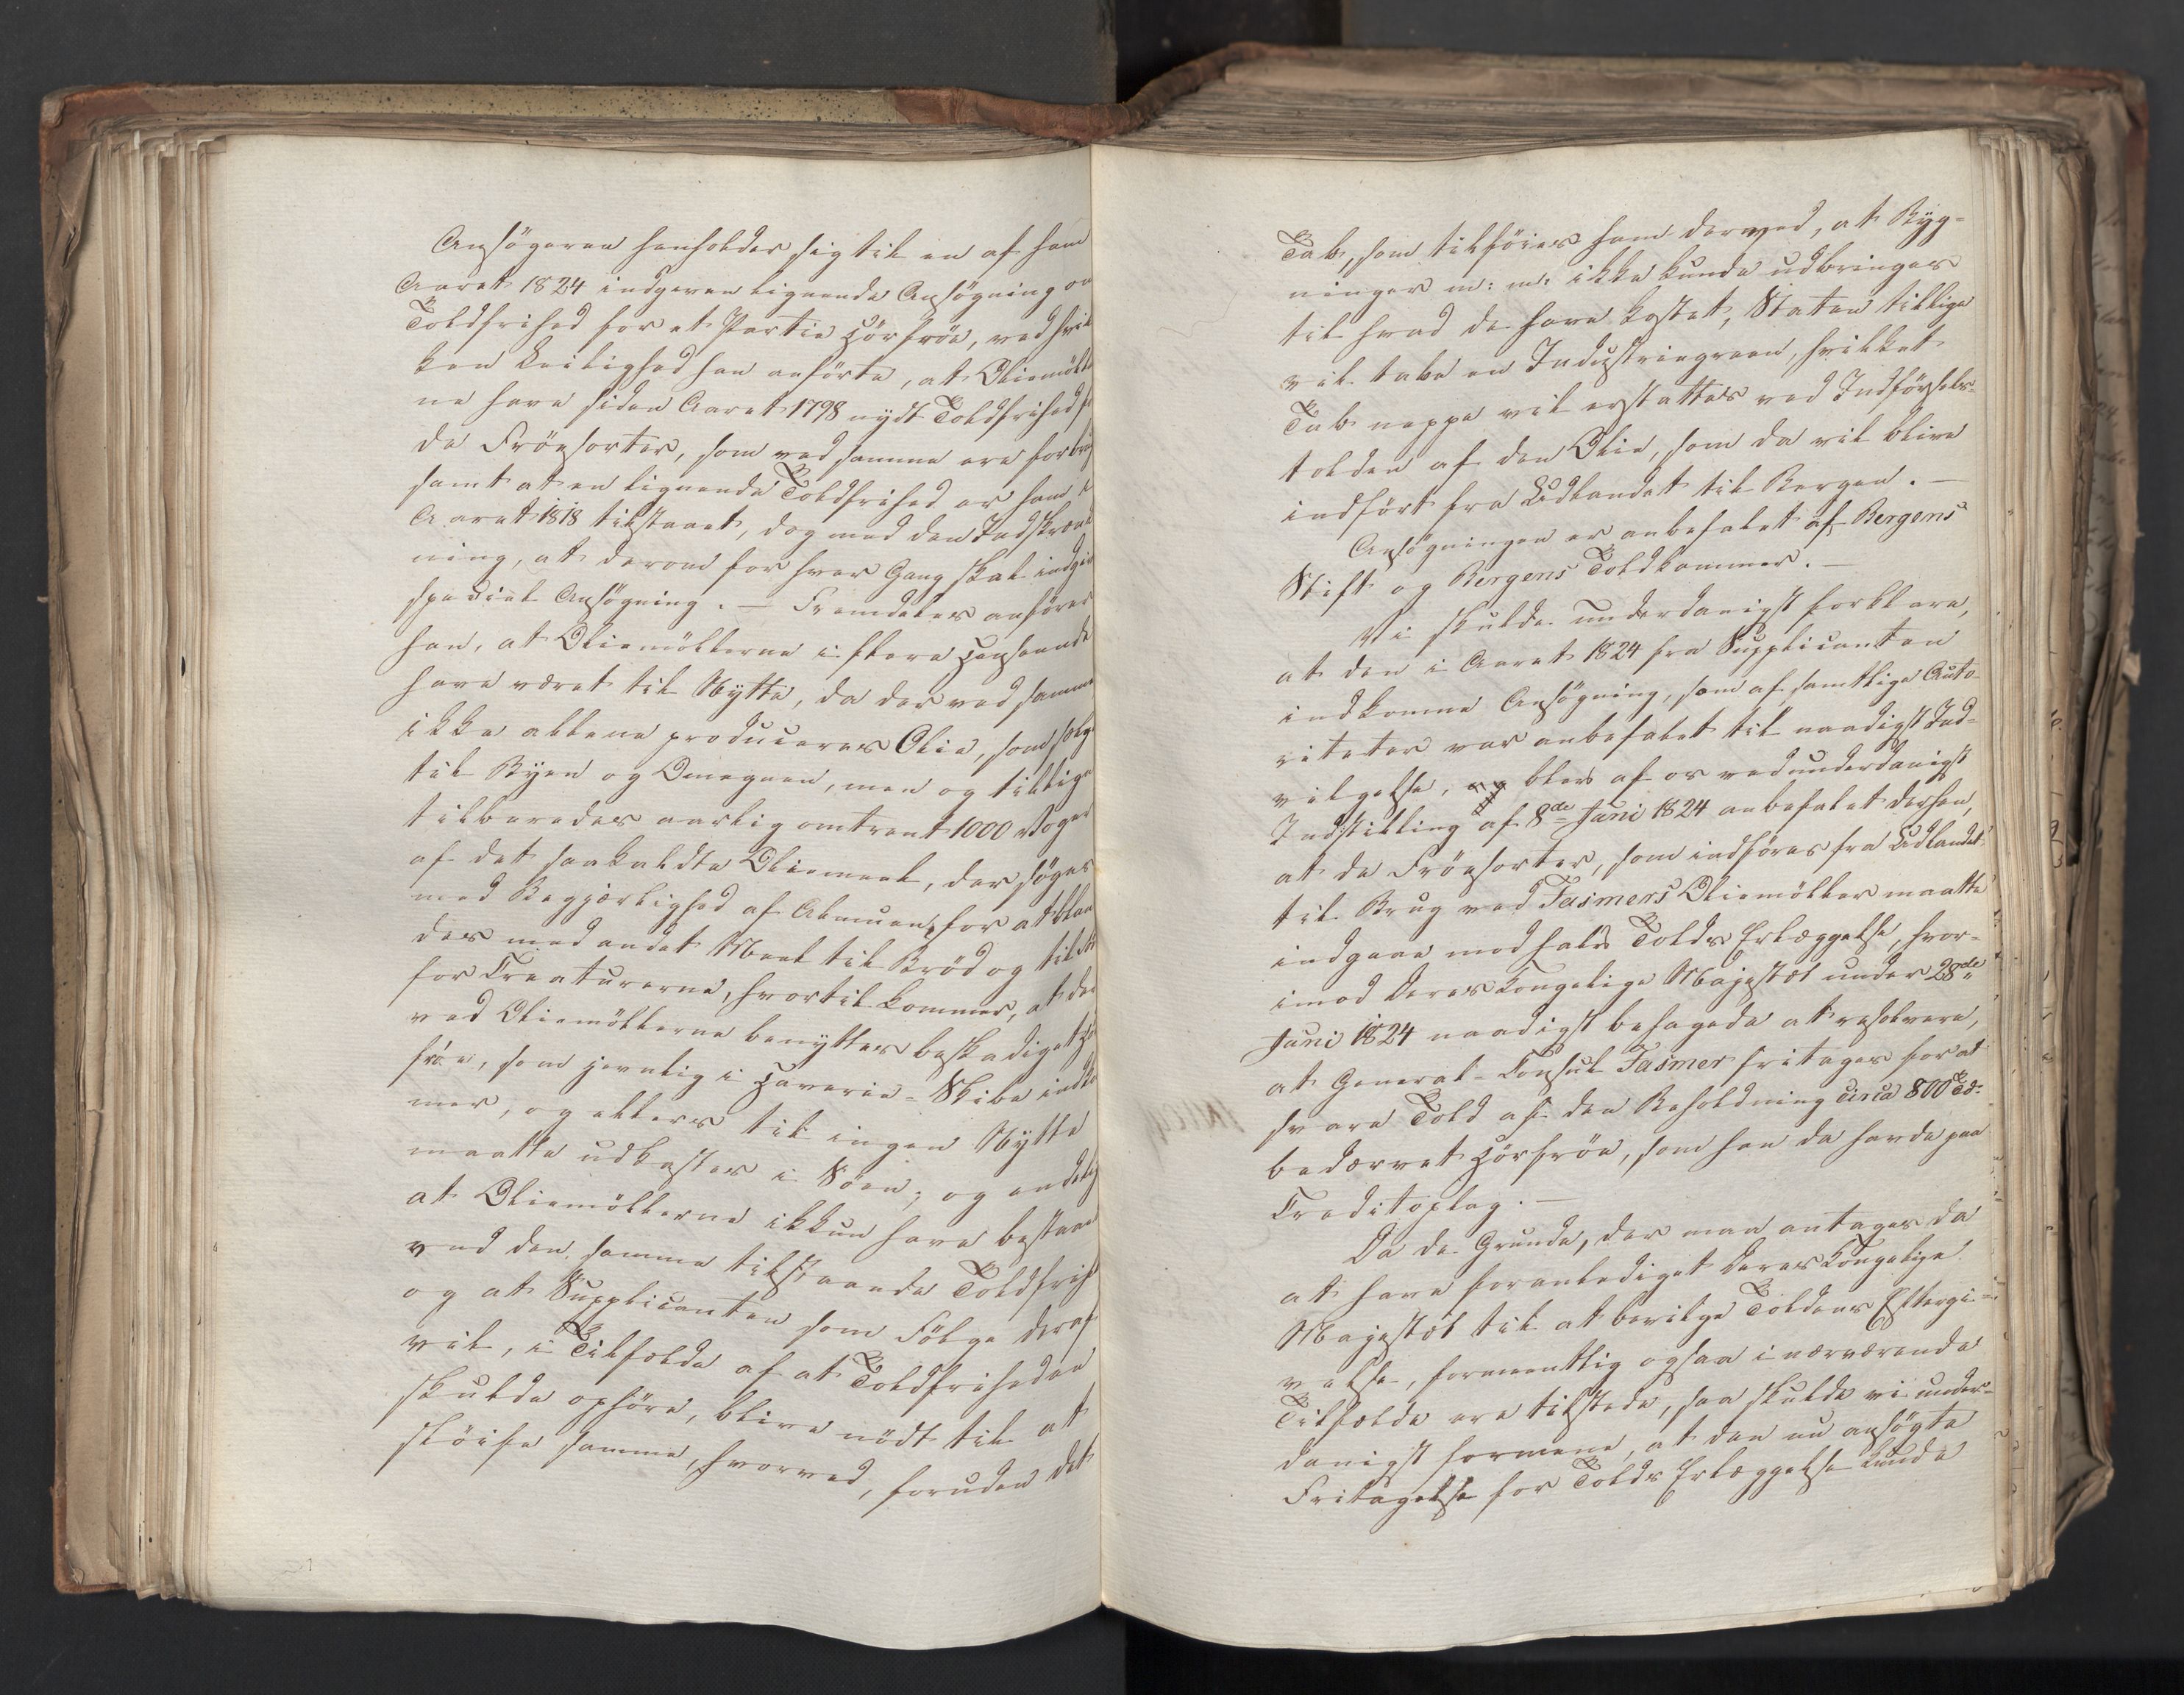 Ansøgeren henholder sig til en af ham
Aaret 1824 indgiven lignende Ansøgning om
Toldfrihed for et Partie Hörfröe, ved hvil
ken Leilighed han anförte, at Oliemölle
ne have siden Aaret 1798 nydt Toldfrihed fo
de Fröesorter, som ved samme ere forbrug
samt at en lignende Toldfrihed er ham i
Aaret 1818 tilstaaet, dog med den Indskrænk
ning, at derom for hver Gang skal indgiv
special Ansögning. — Fremdeles anförer
han, at Oliemöllerne i flere Henseende
have været til Nytte, da der ved samme
ikke allene produceres Olie, som sælg
til Byen og Omegnen, men og tillige
tilberedes aarlig omtrent 1000 Voger
af det saakaldte Oliemeel, der söges
med Begjærlighed af Almuen, for at blan
des med andet Meel til Bröd og til
for Creaturerne, hvortil kommer, at der
ved Oliemöllerne benyttes beskadiget Hör
fröe, som jevnlig i Haverie-Skibe indko
mer, og ellers til ingen Nytte
maatte udkastes i Söen; og endelig
at Oliemöllerne ikkun have bestaaet
ved den samme tilstaaende Toldfrih
og at Supplicanten som Fölge deraf
vil, i Tilfælde af at Toldfriheden
skulde ophöre, blive nödt til at
slöife samme, hvorved, foruden det
Tab, som tilföies ham derved, at Byg-
ninger m: m: ikke kunde udbringes
til hvad de have kostet, Staten tillige
vil tabe en Industriegreen, hvilket
Tab neppe vil erstattes ved Indförsels-
tolden af den Olie, som da vil blive
indfört fra Udlandet til Bergen. —
Ansögningen er anbefalet af Bergens
Stift og Bergens Toldkammer. —
Vi skulde underdanigst forklare,
at den i Aaret 1824 fra Supplicanten
indkomne Ansögning, som af samtlige Auto-
riteter var anbefalet til naadigst Ind-
vilgelse, og blev af os ved underdanigst
Indstilling af 8de Juni 1824 anbefalet derhen,
at de Fröesorter, som indföres fra Udlandet
til Brug ved Fasmers Oliemöller maatte
indgaae mod halv Tolds Erlæggelse, hvor-
imod Deres Kongelige Majestæt under 28de
Juni 1824 naadigst behagede at resolvere,
at General-Consul Fasmer fritages for at
svare Told af den Beholdning circa 800 Td:
bedærvet Hörfröe, som han da havde paa
Creditoplag. —
Da de Grunde, der maa antages da
at have foranlediget Deres Kongelige
Majestæt til at bevilge Toldens Eftergi-
velse, formeentlig ogsaa i nærværende
Tilfælde ere tilstede, saa skulde vi under-
danigst formene, at den nu ansögte
Fritagelse for Tolds Erlæggelse kunde